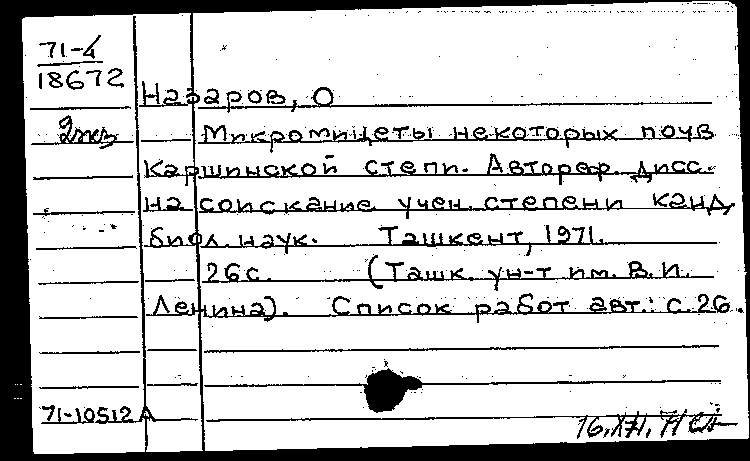 71-4
18672
Назаров, О
2экз
Микромицеты некоторых почв
Каршинской степи. Автореф. дисс.
на соискание учен. степени канд.
биол. наук. Ташкент, 1971.
26с. (Ташк. ун-т им. В.И.
Ленина). Список работ авт.: с.26.
71-10512 А
16.XII.71